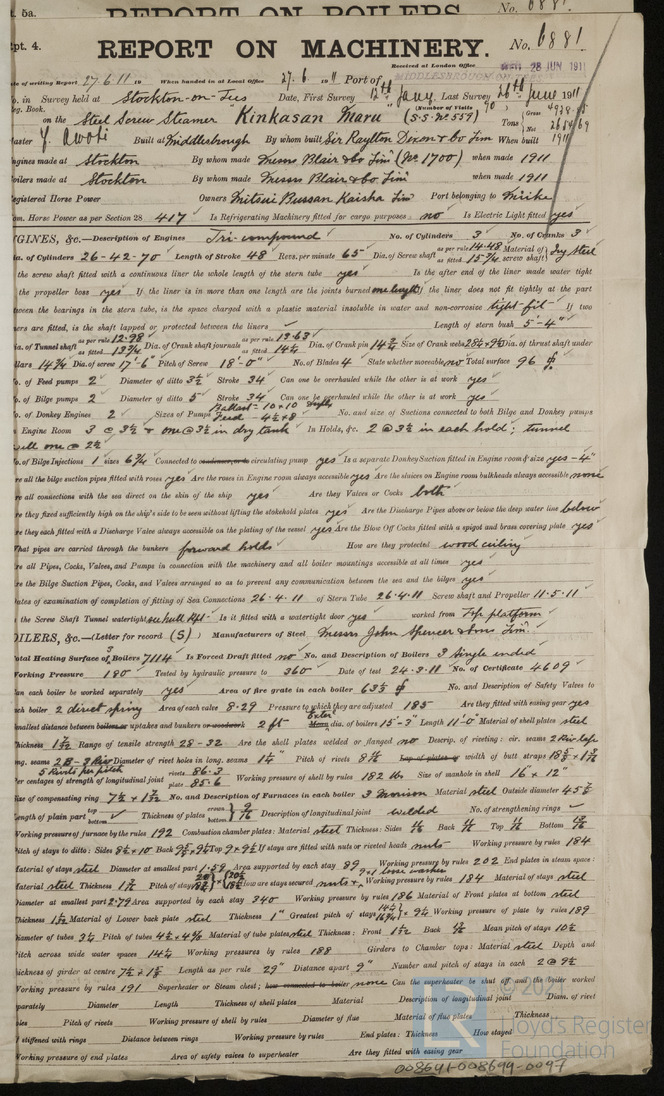 t. 5a. REPORT ON BOILERS No. 6881.
Rpt. 4. REPORT ON MACHINERY. No. 6881
Received at London Office WED. 28 JUN 1911
te of writing Report 27.6.11 19 When handed in at Local Office 27.6.1911 Port of MIDDLESBROUGH-ON-TEES
o. in Survey held at Stockton-on-Tees Date, First Survey 12th Jany. Last Survey 26th June 1911
eg. Book. (Number of Visits 90)
on the Steel Screw Steamer "Kinkasan Maru" (S.S. No 559) Tons Gross 4938.45 Net
aster Y. Awoti Built at Middlesbrough By whom built Sir Raylton Dixon & Co Lim When built 1911
ngines made at Stockton By whom made Messrs Blair & Co. Lim (No. 1700) when made 1911
oilers made at Stockton By whom made Messrs Blair & Co. Lim when made 1911
egistered Horse Power Owners Mitsui Bussan Kaisha Lim Port belonging to Miike
om. Horse Power as per Section 28 417 Is Refrigerating Machinery fitted for cargo purposes no Is Electric Light fitted yes
NGINES, &c.—Description of Engines Tri-compound No. of Cylinders 3 No. of Cranks 3
ia. of Cylinders 26-42-70 Length of Stroke 48 Revs. per minute 65 Dia. of Screw shaft as per rule 14.48 as fitted 15 3/4 Material of screw shaft Ing steel
the screw shaft fitted with a continuous liner the whole length of the stern tube yes Is the after end of the liner made water tight
the propeller boss yes If the liner is in more than one length are the joints burned one length If the liner does not fit tightly at the part
tween the bearings in the stern tube, is the space charged with a plastic material insoluble in water and non-corrosive tight-fit If two
ners are fitted, is the shaft lapped or protected between the liners Length of stern bush 5'-4"
ia. of Tunnel shaft as per rule 12.98 as fitted 13 3/4 Dia. of Crank shaft journals as per rule 13.63 as fitted 14 1/2 Dia. of Crank pin 14 3/4 Size of Crank webs 28 1/2 x 9 1/2 Dia. of thrust shaft under
llars 14 3/4 Dia. of screw 17'-6" Pitch of Screw 18'-0" No. of Blades 4 State whether moveable no Total surface 96
o. of Feed pumps 2 Diameter of ditto 3 1/2 Stroke 34 Can one be overhauled while the other is at work yes
o. of Bilge pumps 2 Diameter of ditto 5 Stroke 34 Can one be overhauled while the other is at work yes
o. of Donkey Engines 2 Sizes of Pumps Ballast-10x10 Feed-4 1/2x8 No. and size of Suctions connected to both Bilge and Donkey pumps
Engine Room 3 @ 3 1/2 & one @ 3 1/2 in dry tank In Holds, &c. 2 @ 3 1/2 in each hold; tunnel
well one @ 2 1/2
o. of Bilge Injections 1 sizes 6 3/4 Connected to condenser, or to circulating pump yes Is a separate Donkey Suction fitted in Engine room & size yes-4"
re all the bilge suction pipes fitted with roses yes Are the roses in Engine room always accessible yes Are the sluices on Engine room bulkheads always accessible none
re all connections with the sea direct on the skin of the ship yes Are they Valves or Cocks both
re they fixed sufficiently high on the ship's side to be seen without lifting the stokehold plates yes Are the Discharge Pipes above or below the deep water line below
re they each fitted with a Discharge Valve always accessible on the plating of the vessel yes Are the Blow Off Cocks fitted with a spigot and brass covering plate yes
hat pipes are carried through the bunkers forward holds How are they protected wood ceiling
re all Pipes, Cocks, Valves, and Pumps in connection with the machinery and all boiler mountings accessible at all times yes
re the Bilge Suction Pipes, Cocks, and Valves arranged so as to prevent any communication between the sea and the bilges yes
ates of examination of completion of fitting of Sea Connections 26.4.11 of Stern Tube 26.4.11 Screw shaft and Propeller 11.5.11
the Screw Shaft Tunnel watertight see hull Rpt. Is it fitted with a watertight door yes worked from Top platform
OILERS, &c.—(Letter for record (S)) Manufacturers of Steel Messrs John Spencer & Sons Lim.
otal Heating Surface of 3 Boilers 7114 Is Forced Draft fitted no No. and Description of Boilers 3 Single ended
orking Pressure 180 Tested by hydraulic pressure to 360 Date of test 24.3.11 No. of Certificate 4609
an each boiler be worked separately yes Area of fire grate in each boiler 63 1/2 No. and Description of Safety Valves to
ach boiler 2 direct spring Area of each valve 8.29 Pressure to which they are adjusted 185 Are they fitted with easing gear yes
mallest distance between boilers or uptakes and bunkers or woodwork 2 ft Exter dia. of boilers 15'-3" Length 11'-0 Material of shell plates steel
hickness Range of tensile strength 28-32 Are the shell plates welded or flanged no Descrip. of riveting: cir. seams 2 Riv lap
ng. seams Diameter of rivet holes in long. seams Pitch of rivets Lap of plates or width of butt straps
5 Rivets per pitch
er centages of strength of longitudinal joint rivets 86.3 plate 85.6 Working pressure of shell by rules 182 lbs Size of manhole in shell 16" x 12"
ize of compensating ring No. and Description of Furnaces in each boiler 3 Morison Material steel Outside diameter
ength of plain part top bottom Thickness of plates crown bottom 9/16 Description of longitudinal joint welded No. of strengthening rings
orking pressure of furnace by the rules 192 Combustion chamber plates: Material steel Thickness: Sides Back Top Bottom
itch of stays to ditto: Sides 8 3/4 x 10 Back Top If stays are fitted with nuts or riveted heads nuts Working pressure by rules 184
aterial of stays steel Diameter at smallest part 1.59 Area supported by each stay 89 Working pressure by rules 202 End plates in steam space:
aterial steel Thickness Pitch of stays How are stays secured nuts & loose washers Working pressure by rules 184 Material of stays steel
iameter at smallest part 2.79 Area supported by each stay 340 Working pressure by rules 186 Material of Front plates at bottom steel
hickness Material of Lower back plate steel Thickness 1" Greatest pitch of stays Working pressure of plate by rules 189
iameter of tubes 3 1/4 Pitch of tubes Material of tube plates steel Thickness: Front Back Mean pitch of stays 10 1/2
itch across wide water spaces 14 1/2 Working pressures by rules 188 Girders to Chamber tops: Material steel Depth and
hickness of girder at centre Length as per rule 29" Distance apart 9" Number and pitch of stays in each 2 @ 9 1/2
orking pressure by rules 191 Superheater or Steam chest; how connected to boiler none Can the superheater be shut off and the boiler worked
parately Diameter Length Thickness of shell plates Material Description of longitudinal joint Diam. of rivet
oles Pitch of rivets Working pressure of shell by rules Diameter of flue Material of flue plates Thickness
stiffened with rings Distance between rings Working pressure by rules End plates: Thickness How stayed
orking pressure of end plates Area of safety valves to superheater Are they fitted with easing gear
© 2021
Lloyd's Register
Foundation
008641-008699-0097